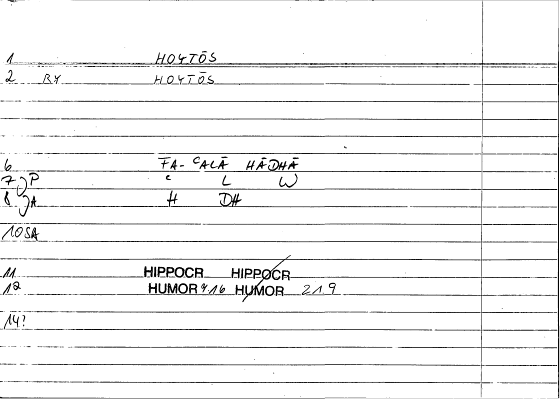 1 HOYTŌS
2 RY HOYTŌS
6 FA-ʿALĀ HĀDHĀ
7 P ʿ L W
8 A H DH
10 SA
11 HIPPOCR HIPPOCR
12 HUMOR 416 HUMOR 219
14?